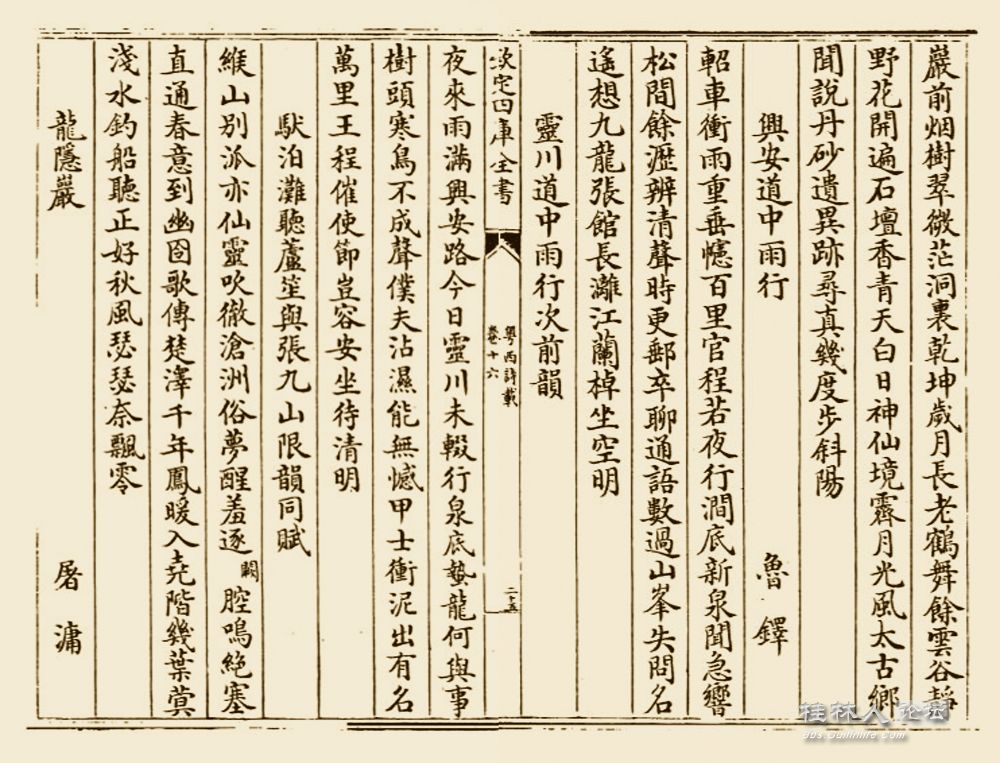 巖前烟樹翠微茫洞裏乾坤歲月長老鶴舞餘雲谷靜
野花開遍石壇香青天白日神仙境霽月光風太古鄉
聞說丹砂遺異跡尋真幾度步斜陽
興安道中雨行 魯鐸
軺車衝雨重垂幰百里官程若夜行澗底新泉聞急響
松間餘瀝辨清聲時更郵卒聊通語數過山峯失問名
遙想九龍張館長灕江蘭棹坐空明
靈川道中雨行次前韻
欽定四庫全書
粤西詩載
卷十六
二十五
夜來雨滿興安路今日靈川未輟行泉底蟄龍何與事
樹頭寒鳥不成聲僕夫沾濕能無憾甲士衝泥出有名
萬里王程催使節豈容安坐待清明
馱泊灘聽蘆笙與張九山限韻同賦
緱山別派亦仙靈吹徹滄洲俗夢醒羞逐闕腔鳴絶塞
直通春意到幽囹歌傳楚澤千年鳳暖入堯階幾葉蓂
淺水釣船聽正好秋風瑟瑟奈飄零
龍隱巖 屠滽
桂林人论坛
bbs.Guilinlife.com